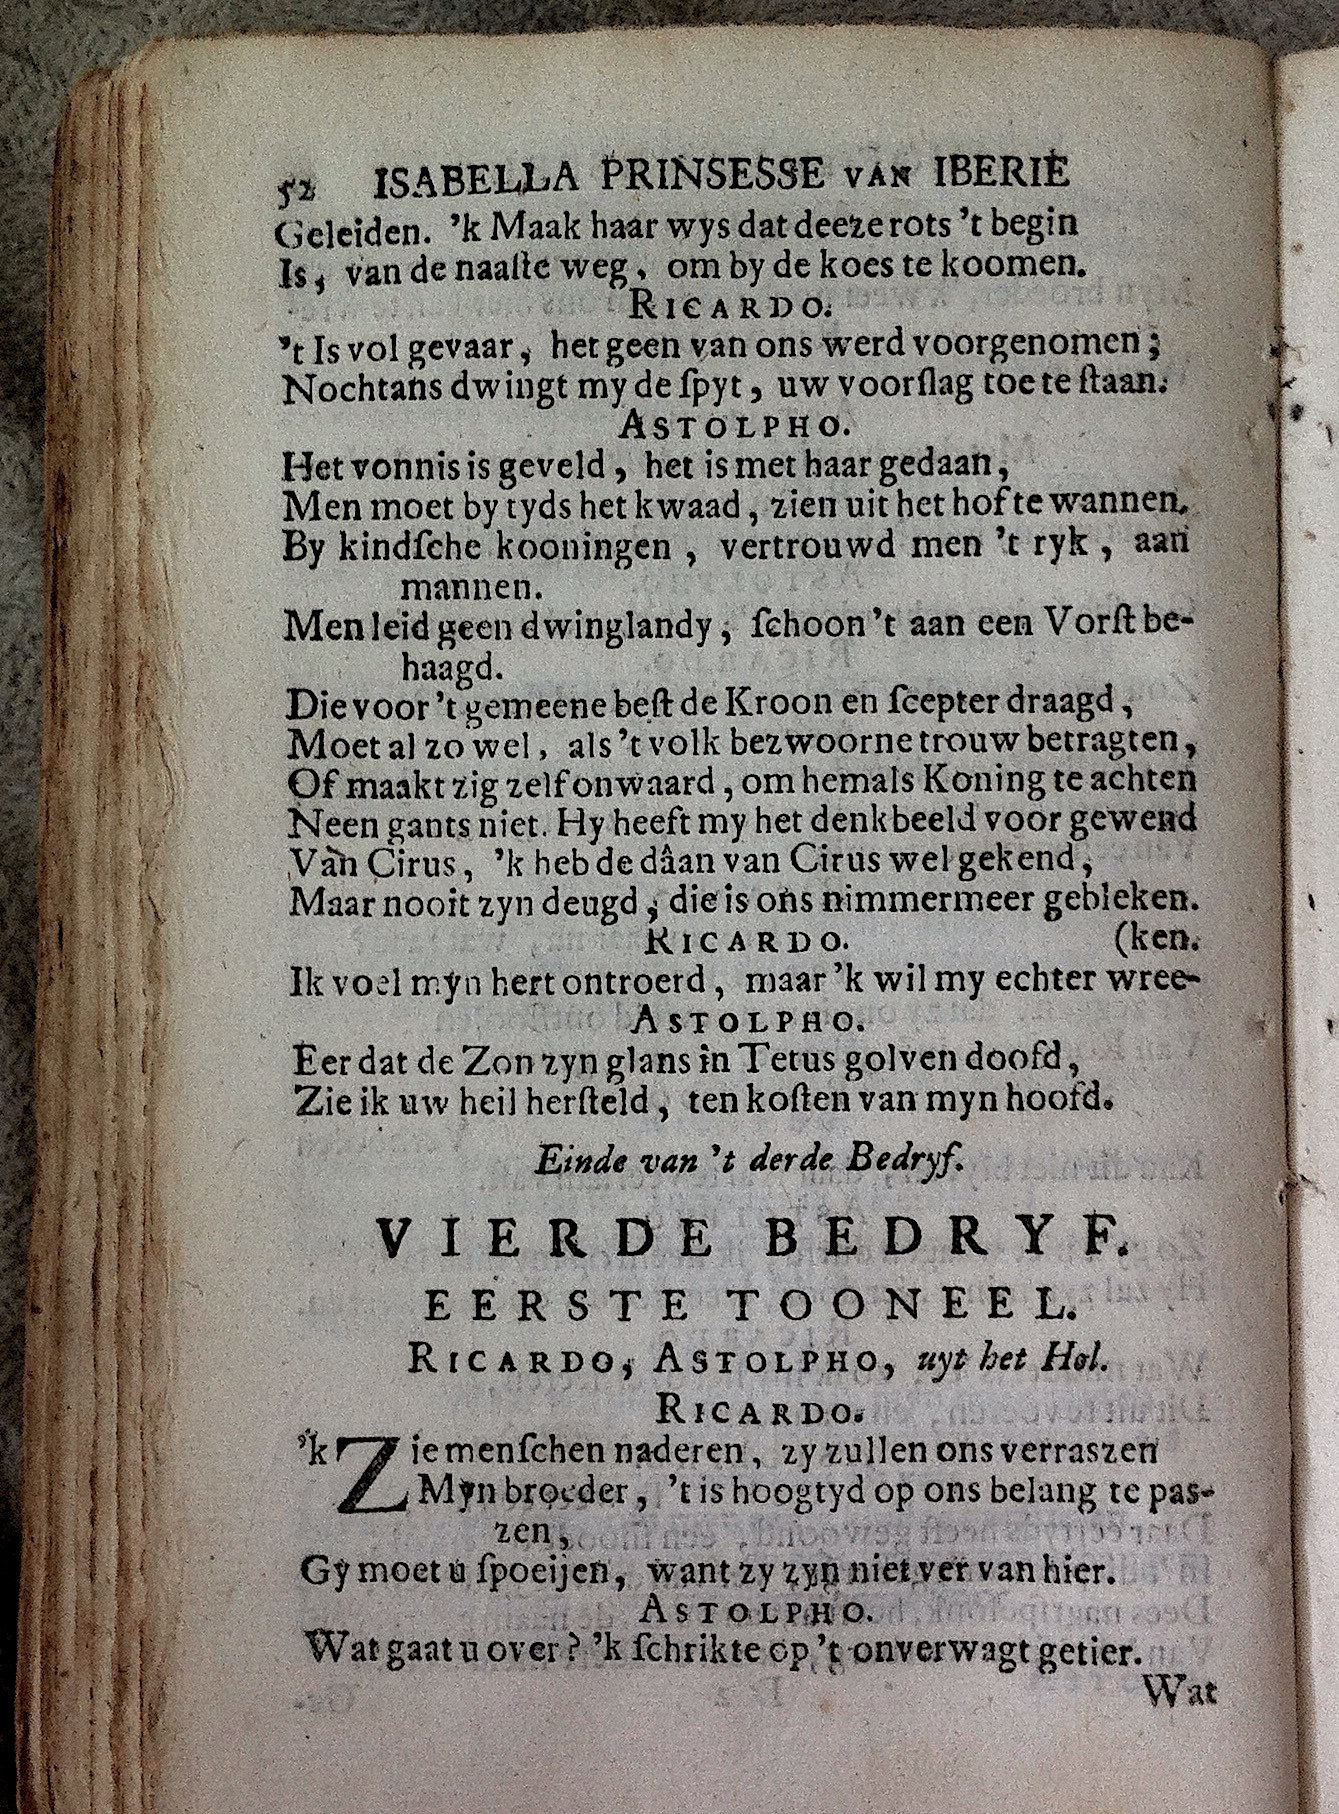 52 ISABELLA PRINSESSE VAN IBERIE
Geleiden. 'k Maak haar wys dat deeze rots 't begin
Is, van de naaſte weg, om by de koes te koomen.
RICARDO.
't Is vol gevaar, het geen van ons werd voorgenomen;
Nochtans dwingt my de ſpyt, uw voorſlag toe te ſtaan.
ASTOLPHO.
Het vonnis is geveld, het is met haar gedaan,
Men moet by tyds het kwaad, zien uit het hof te wannen.
By kindſche kooningen, vertrouwd men 't ryk, aan
mannen.
Men leid geen dwinglandy, ſchoon 't aan een Vorſt be-
haagd.
Die voor 't gemeene beſt de Kroon en ſcepter draagd,
Moet al zo wel, als 't volk bezwoorne trouw betragten,
Of maakt zig zelf onwaard, om hemals Koning te achten
Neen gants niet. Hy heeft my het denkbeeld voor gewend
Van Cirus, 'k heb de dâan van Cirus wel gekend,
Maar nooit zyn deugd, die is ons nimmermeer gebleken.
RICARDO. (ken.
Ik voel myn hert ontroerd, maar 'k wil my echter wree-
ASTOLPHO.
Eer dat de Zon zyn glans in Tetus golven doofd,
Zie ik uw heil herſteld, ten koſten van myn hoofd.
Einde van 't derde Bedryf.
VIERDE BEDRYF.
EERSTE TOONEEL.
RICARDO, ASTOLPHO, uyt het Hol.
RICARDO.
'k Zie menſchen naderen, zy zullen ons verraszen
Myn broeder, 't is hoogtyd op ons belang te pas-
zen,
Gy moet u ſpoeijen, want zy zyn niet ver van hier.
ASTOLPHO.
Wat gaat u over? 'k ſchrikte op 't onverwagt getier.
Wat